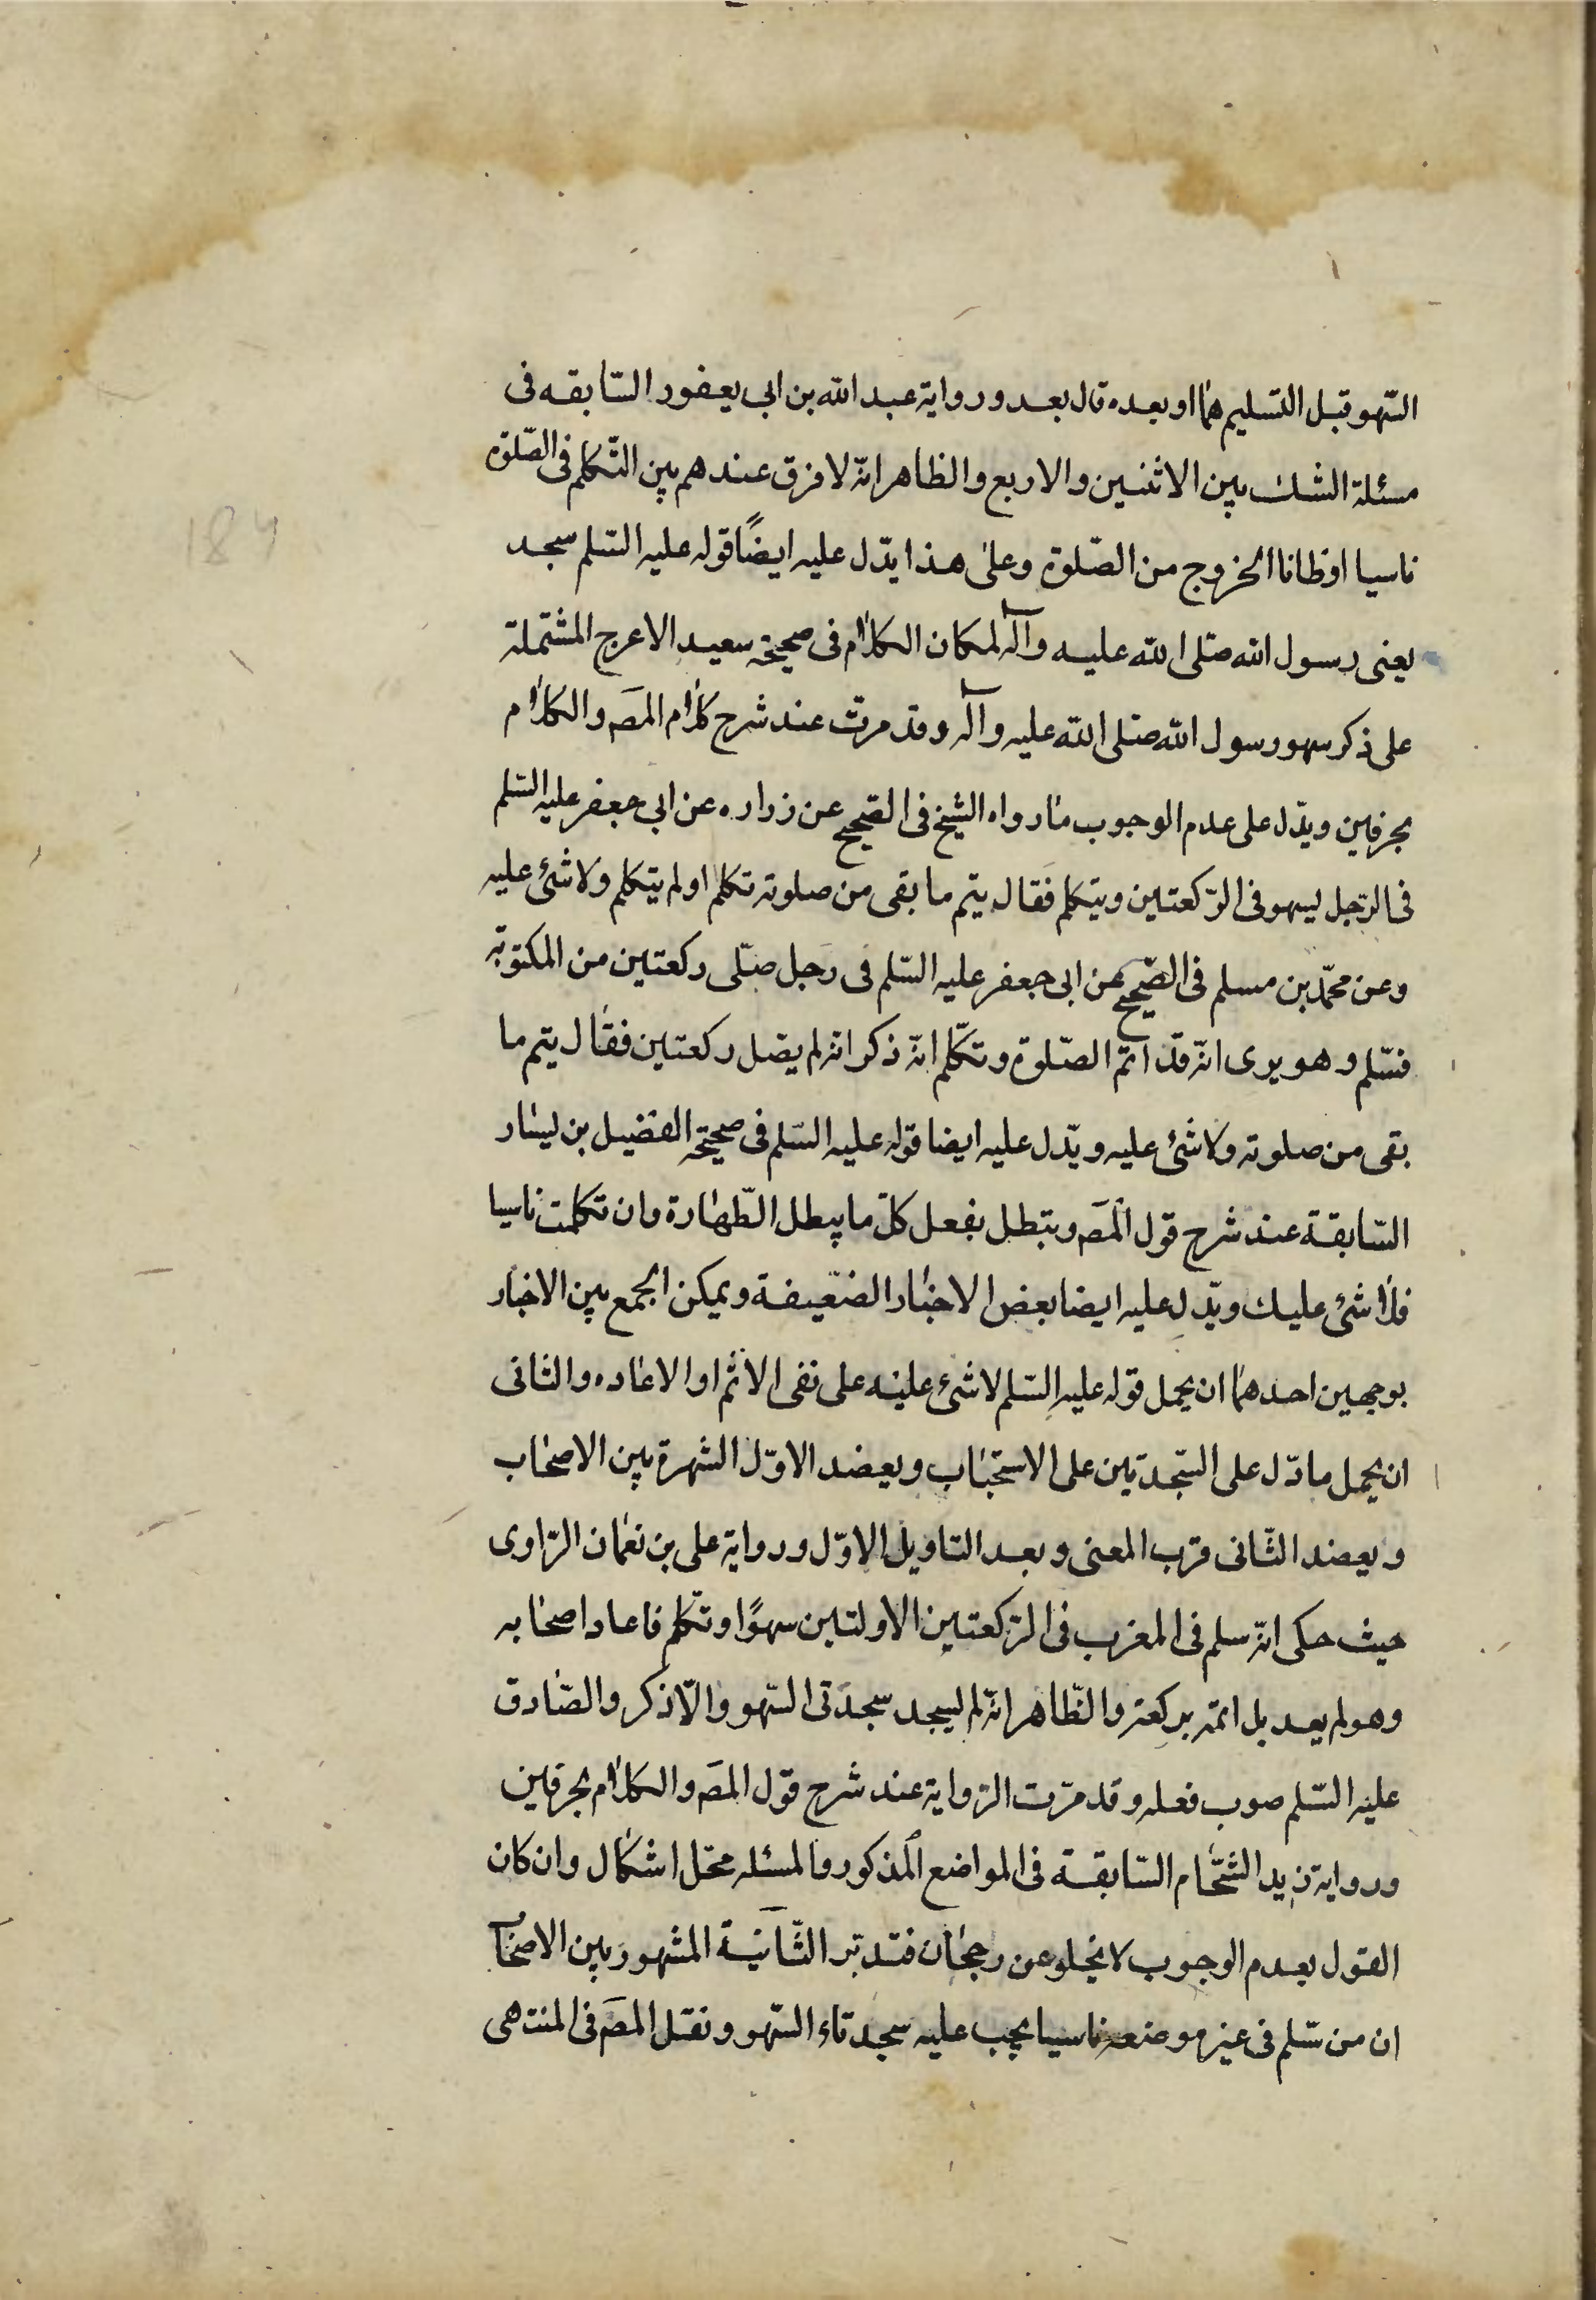 السّهو قبل التسليم هما او بعده قال بعد ورواية عبد الله بن ابى يعفور السّابقه فى
مسئلة الشك بين الاثنين والاربع والظاهر انّه لا فرق عندهم بين التكلم فى الصّلوة
ناسيا او ظانا الخروج من الصّلوة وعلى هذا يدّل عليه ايضًا قوله عليه السّلم سجد
يعنى رسول الله صلى الله عليه وآله لمكان الكلام فى صحيحة سعيد الاعرج المشتملة
على ذكر سهو رسول الله صلى الله عليه وآله وقد مرت عند شرح كلام المصَ والكلام
بحرفين ويدّل على عدم الوجوب ما رواه الشيخ فى الصّحيح عن زراره عن ابى جعفر عليه السّلم
فى الرّجل يسهو فى الرّكعتين ويتكلم فقال يتم ما بقى من صلوته تكلم او لم يتكلم ولا شئ عليه
وعن محمّد بن مسلم فى الصّحيح عن ابى جعفر عليه السّلم فى رجل صلّى ركعتين من المكتوبة
فسّلم وهو يرى انّه قد اتم الصّلوة وتكّلم انّه ذكر انه لم يصل ركعتين فقال يتم ما
بقى من صلوته ولا شئ عليه ويدّل عليه ايضا قوله عليه السّلم فى صحيحة الفضيل بن يسار
السّابقة عند شرح قول المصَ وتبطل بفعل كلّ ما يبطل الطّهارة وان تكلمت ناسيا
فلا شئ عليك ويدّل عليه ايضا بعض الاخبار الضعيفة ويمكن الجمع بين الاخبار
بوجهين احدهما ان يحمل قوله عليه السّلم لا شئ عليه على نفى الاثم او الاعاده والثانى
ان يحمل ما دّل على السّجدتين على الاستحباب ويعضد الاوّل الشهرة بين الاصحاب
ويعضد الثّانى قرب المعنى وبعد التاويل الاوّل ورواية على بن نعمان الرّاوى
حيث حكى انّه سلم فى المغرب فى الرّكعتين الاولتين سهوًا وتكّلم فاعاد اصحابه
وهو لم يعد بل اتمّه بركعة والظّاهر انّه لم يسجد سجدتى السّهو والّا ذكر والصّادق
عليه السّلم صوب فعله وقد مرّت الرّواية عند شرح قول المصَ والكلام بحرفين
ورواية زيد الشّحّام السّابقة فى المواضع المذكور والمسئله محّل اشكال وان كان
القول بعدم الوجوب لا يخلو عن رجحان فتدبّر الثّانية المشهور بين الاصحاب
ان من سّلم فى غير موضعه ناسيا يجب عليه سجدتاء السّهو ونقل المصَ فى المنتهى
184